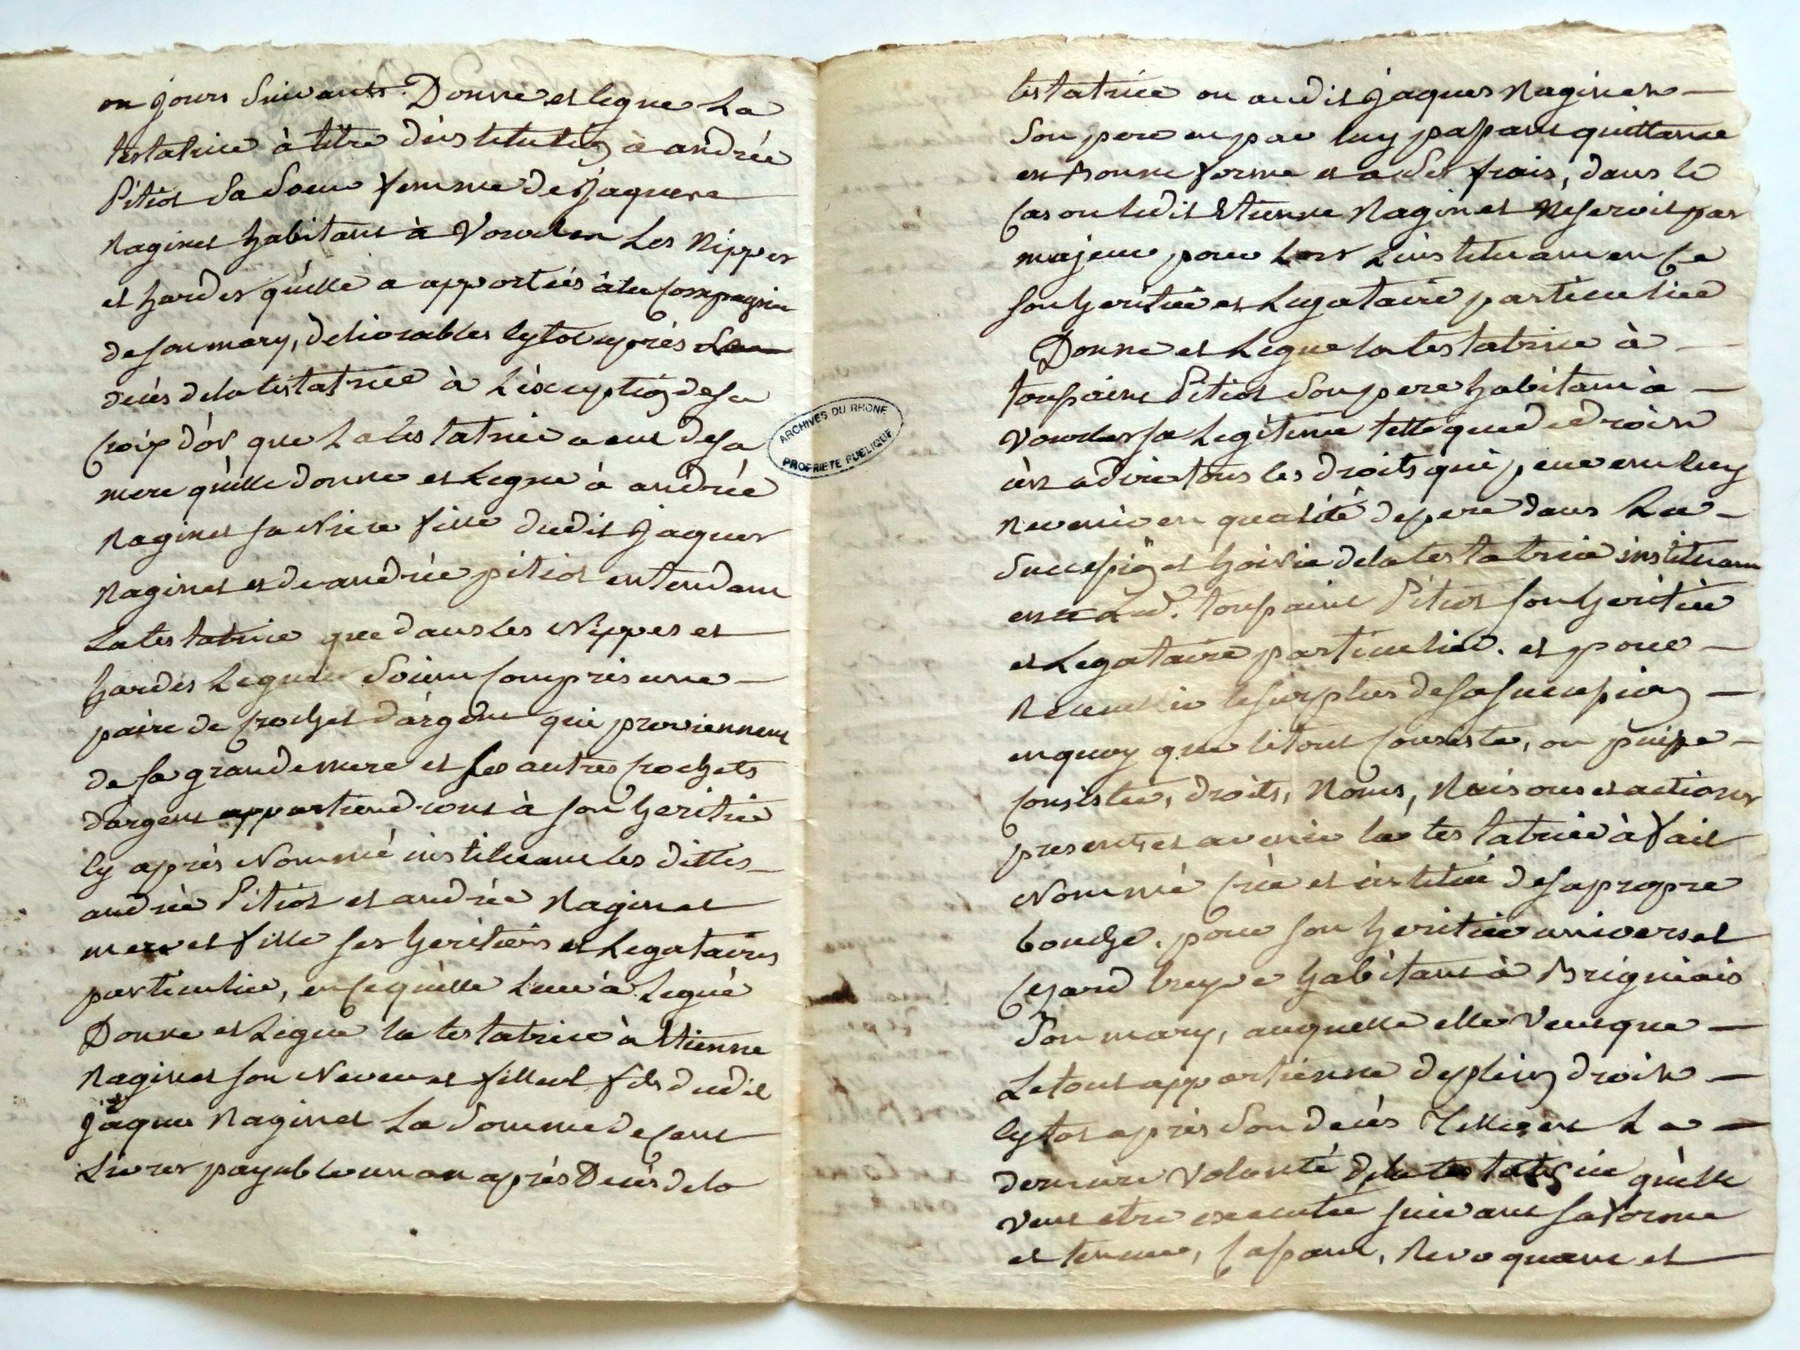 ou jours suivants. Donne et legue La
testatrice à titre d'institution à andrée
Pitiot sa soeur femme de Jaques
Raginet habitant à Vourles Les Nippes
et hardes qu'elle a apportées à la Compagnie
de son mary, delivrables cytot après Le
decés de la testatrice à L'exception de sa
Croix d'or que La testatrice a eue de sa
mere qu'elle donne et Legue à andrée
Raginet sa Niece fille dudit Jaques
Raginet et de andrée pitiot entendant
La testatrice que dans les Nippes et
hardes Leguées Soient Compris une
paire de Crochet d'argent qui proviennent
de sa grande mere et les autres Crochets
d'argent appartiendront à son heritier
cy après Nommé instituant les dittes
andrée Pitiot et andrée Raginet
mere et fille ses heritiers et Legataires
particulier, en Ce qu'elle Leur à Legué
Donne et Legue la testatrice à Etienne
Raginet son Neveu et filleul fils dudit
Jaques Raginet La Somme de Cent
Livres payable un an après Decés de la
testatrice ou audit Jaques Raginet
Son pere en par luy passant quittance
en Bonne forme et a ses frais, dans le
Cas ou ledit Etienne Raginet Ne seroit pas
majeur pour Lors L'instituant en Ce
son heritier et Legataire particulier
Donne et Legue la testatrice à
toussaint Pitiot Son pere habitant à
Vourles sa Legitime telle que de droit
c'est a dire tous les droits qui peuvent luy
Revenir en qualité de pere dans La
Succession et hoirie de la testatrice instituant
Led. toussaint Pitiot son heritier
et Legataire particulier. et pour
Recueillir le surplus de sa succession
en quoy que le tout Consiste, ou puisse
Consister, droits, Noms, Raisons et actions
presents et avenir la testatrice à fait
Nommé Crée et institué de sa propre
bouche. pour son heritier universel
habitant à Brigniais
Son mary, auquelle elle Veut que
Le tout appartienne de plein droit
cytot après Son decés Telle est La
derniere Volonté de la testatrice qu'elle
Veut etre executée suivant sa forme
et teneur, Cassant, Revoquant et
ARCHIVES DU RHONE
PROPRIETE PUBLIQUE